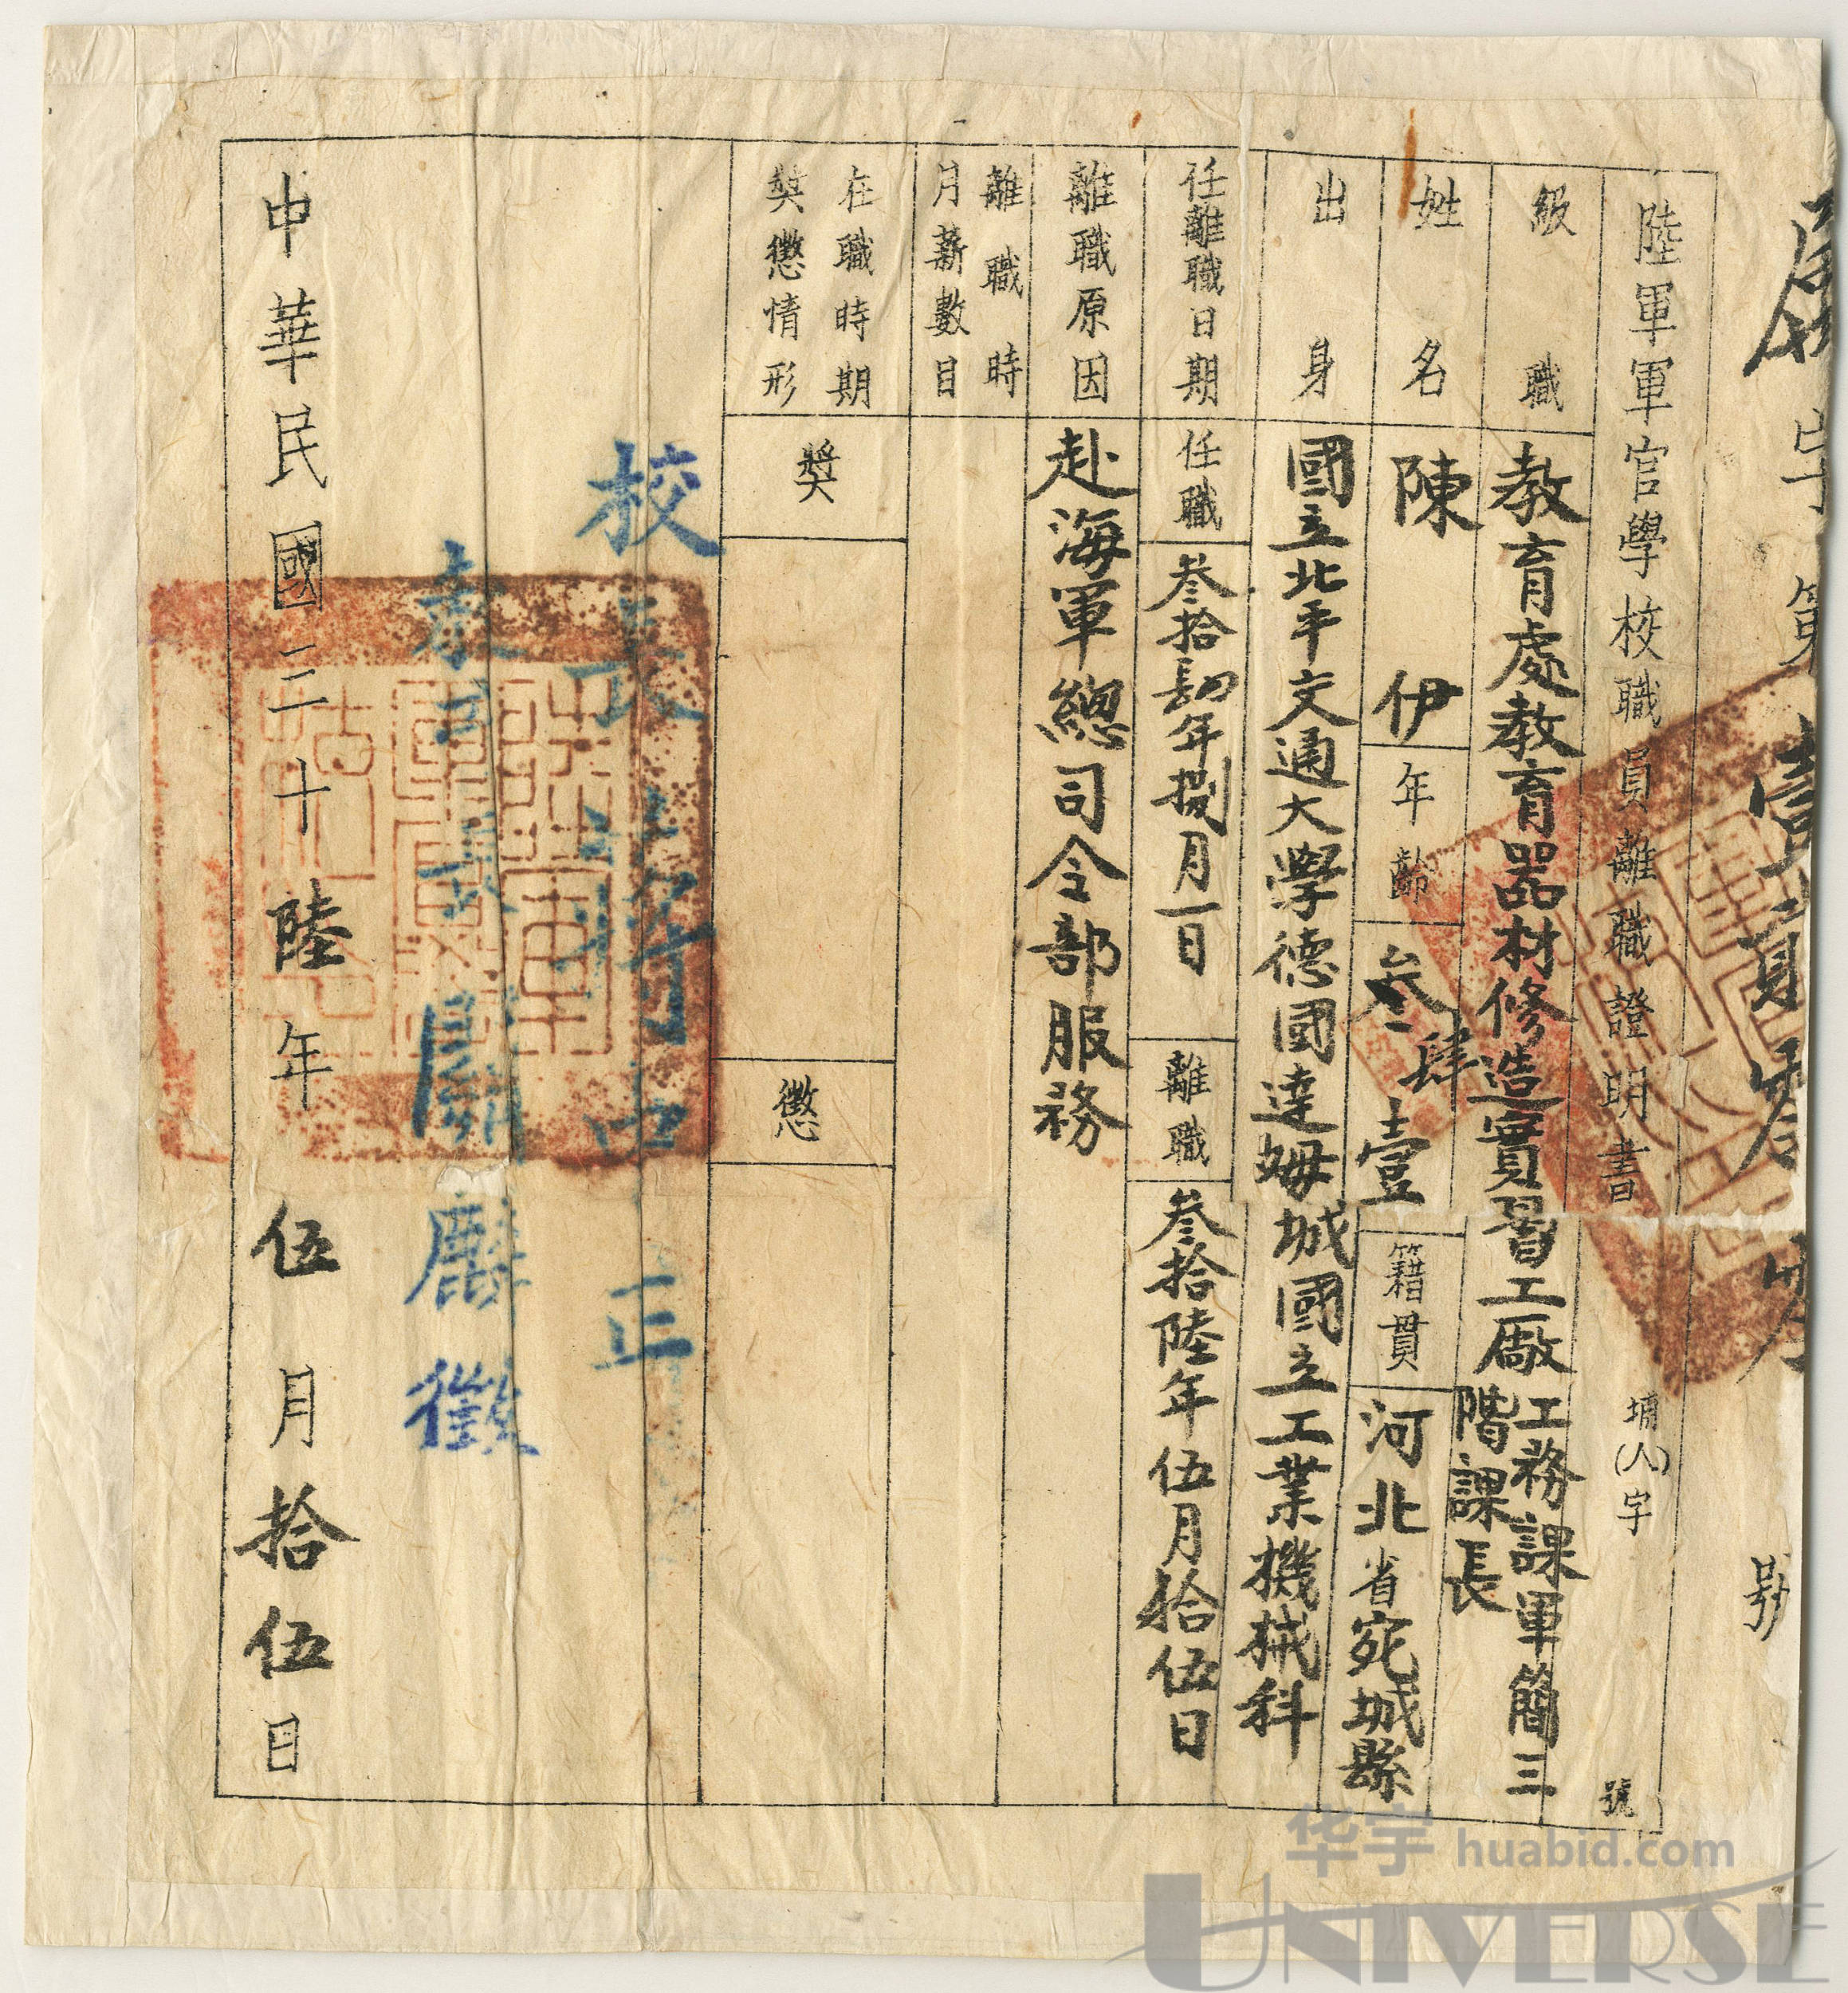 字第壹貳
號
陸軍軍官學校職員離職證明書 埔(人)字 號
級職
教育處教育器材修造實習工廠工務課軍簡三階課長
姓名
陳伊
年齡
叁肆壹
籍貫
河北省宛城縣
出身
國立北平交通大學德國達姆城國立工業機械科
任離職日期
任職
叁拾肆年捌月一日
離職
叁拾陸年伍月拾伍日
離職原因
赴海軍總司令部服務
離職時
月薪數目
在職時期
獎懲情形
獎
懲
校長蔣中正
關麟徵
中華民國三十陸年伍月拾伍日
华宇 huabid.com
UNIVERSE